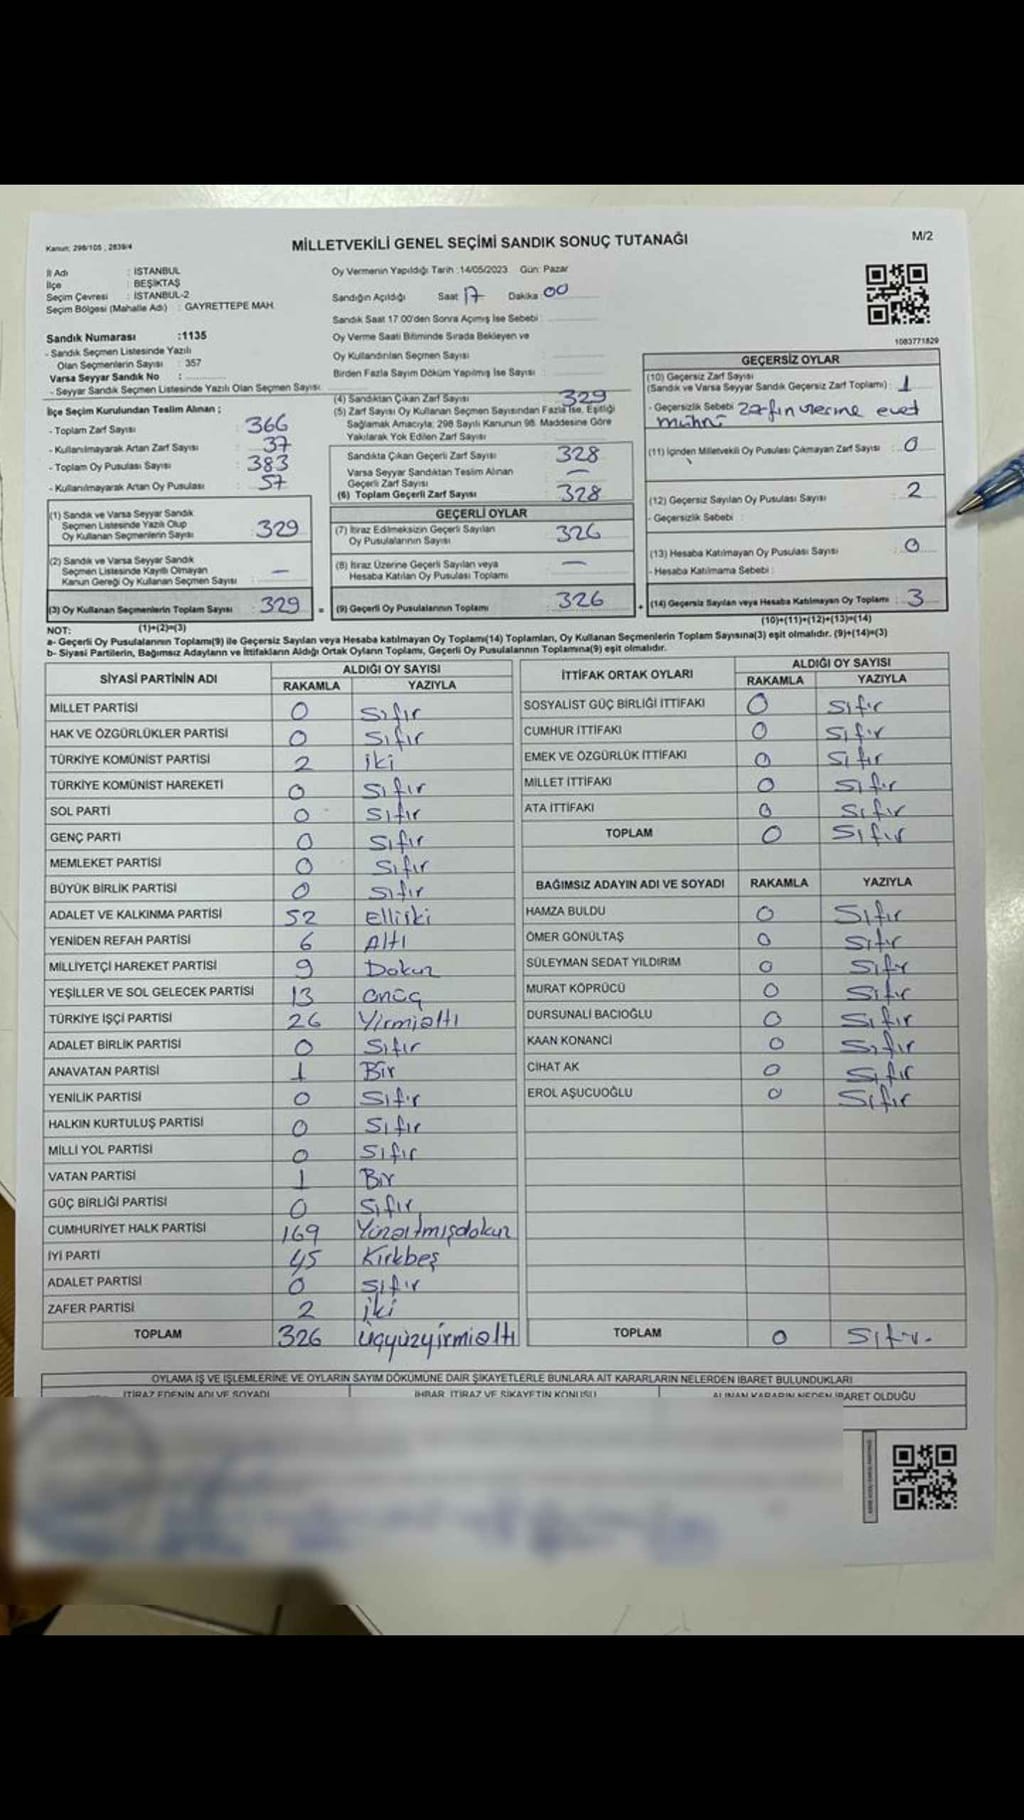 Kanun: 298/105 , 2839/4
MİLLETVEKİLİ GENEL SEÇİMİ SANDIK SONUÇ TUTANAĞI
M/2
İl Adı : İSTANBUL
İlçe : BEŞİKTAŞ
Seçim Çevresi : İSTANBUL-2
Seçim Bölgesi (Mahalle Adı) : GAYRETTEPE MAH.
Sandık Numarası :1135
- Sandık Seçmen Listesinde Yazılı
Olan Seçmenlerin Sayısı : 357
Varsa Seyyar Sandık No :
- Seyyar Sandık Seçmen Listesinde Yazılı Olan Seçmen Sayısı:
Oy Vermenin Yapıldığı Tarih :14/05/2023 Gün: Pazar
Sandığın Açıldığı Saat 17 Dakika 00
Sandık Saat 17.00'den Sonra Açımış İse Sebebi :
Oy Verme Saati Bitiminde Sırada Bekleyen ve
Oy Kullandırılan Seçmen Sayısı :
Birden Fazla Sayım Döküm Yapılmış İse Sayısı :
1083771829
İlçe Seçim Kurulundan Teslim Alınan ;
- Toplam Zarf Sayısı : 366
- Kullanılmayarak Artan Zarf Sayısı : 37
- Toplam Oy Pusulası Sayısı : 383
- Kullanılmayarak Artan Oy Pusulası : 57
(1) Sandık ve Varsa Seyyar Sandık
Seçmen Listesinde Yazılı Olup
Oy Kullanan Seçmenlerin Sayısı : 329
(2) Sandık ve Varsa Seyyar Sandık
Seçmen Listesinde Kayıtlı Olmayan
Kanun Gereği Oy Kullanan Seçmen Sayısı : —
(3) Oy Kullanan Seçmenlerin Toplam Sayısı : 329 =
(1)+(2)=(3)
(4) Sandıktan Çıkan Zarf Sayısı : 329
(5) Zarf Sayısı Oy Kullanan Seçmen Sayısından Fazla İse, Eşitliği
Sağlamak Amacıyla; 298 Sayılı Kanunun 98. Maddesine Göre
Yakılarak Yok Edilen Zarf Sayısı :
Sandıkta Çıkan Geçerli Zarf Sayısı : 328
Varsa Seyyar Sandıktan Teslim Alınan
Geçerli Zarf Sayısı : —
(6) Toplam Geçerli Zarf Sayısı : 328
GEÇERLİ OYLAR
(7) İtiraz Edilmeksizin Geçerli Sayılan
Oy Pusulalarının Sayısı : 326
(8) İtiraz Üzerine Geçerli Sayılan veya
Hesaba Katılan Oy Pusulası Toplamı : —
(9) Geçerli Oy Pusulalarının Toplamı : 326 +
GEÇERSİZ OYLAR
(10) Geçersiz Zarf Sayısı
(Sandık ve Varsa Seyyar Sandık Geçersiz Zarf Toplamı) : 1
- Geçersizlik Sebebi Zarfın üzerine evet
mührü
(11) İçinden Milletvekili Oy Pusulası Çıkmayan Zarf Sayısı : 0
(12) Geçersiz Sayılan Oy Pusulası Sayısı : 2
- Geçersizlik Sebebi :
(13) Hesaba Katılmayan Oy Pusulası Sayısı : 0
- Hesaba Katılmama Sebebi :
(14) Geçersiz Sayılan veya Hesaba Katılmayan Oy Toplamı : 3
(10)+(11)+(12)+(13)=(14)
NOT:
a- Geçerli Oy Pusulalarının Toplamı(9) ile Geçersiz Sayılan veya Hesaba katılmayan Oy Toplamı(14) Toplamları, Oy Kullanan Seçmenlerin Toplam Sayısına(3) eşit olmalıdır. (9)+(14)=(3)
b- Siyasi Partilerin, Bağımsız Adayların ve İttifakların Aldığı Ortak Oyların Toplamı, Geçerli Oy Pusulalarının Toplamına(9) eşit olmalıdır.
SİYASİ PARTİNİN ADI ALDIĞI OY SAYISI
RAKAMLA YAZIYLA
MİLLET PARTİSİ 0 Sıfır
HAK VE ÖZGÜRLÜKLER PARTİSİ 0 Sıfır
TÜRKİYE KOMÜNİST PARTİSİ 2 iki
TÜRKİYE KOMÜNİST HAREKETİ 0 Sıfır
SOL PARTİ 0 Sıfır
GENÇ PARTİ 0 Sıfır
MEMLEKET PARTİSİ 0 Sıfır
BÜYÜK BİRLİK PARTİSİ 0 Sıfır
ADALET VE KALKINMA PARTİSİ 52 Elliiki
YENİDEN REFAH PARTİSİ 6 Altı
MİLLİYETÇİ HAREKET PARTİSİ 9 Dokuz
YEŞİLLER VE SOL GELECEK PARTİSİ 13 Onüç
TÜRKİYE İŞÇİ PARTİSİ 26 Yirmialtı
ADALET BİRLİK PARTİSİ 0 Sıfır
ANAVATAN PARTİSİ 1 Bir
YENİLİK PARTİSİ 0 Sıfır
HALKIN KURTULUŞ PARTİSİ 0 Sıfır
MİLLİ YOL PARTİSİ 0 Sıfır
VATAN PARTİSİ 1 Bir
GÜÇ BİRLİĞİ PARTİSİ 0 Sıfır
CUMHURİYET HALK PARTİSİ 169 Yüzaltmışdokuz
İYİ PARTİ 45 Kırkbeş
ADALET PARTİSİ 0 Sıfır
ZAFER PARTİSİ 2 iki
TOPLAM 326 Üçyüzyirmialtı
İTTİFAK ORTAK OYLARI ALDIĞI OY SAYISI
RAKAMLA YAZIYLA
SOSYALİST GÜÇ BİRLİĞİ İTTİFAKI 0 Sıfır
CUMHUR İTTİFAKI 0 Sıfır
EMEK VE ÖZGÜRLÜK İTTİFAKI 0 Sıfır
MİLLET İTTİFAKI 0 Sıfır
ATA İTTİFAKI 0 Sıfır
TOPLAM 0 Sıfır
BAĞIMSIZ ADAYIN ADI VE SOYADI RAKAMLA YAZIYLA
HAMZA BULDU 0 Sıfır
ÖMER GÖNÜLTAŞ 0 Sıfır
SÜLEYMAN SEDAT YILDIRIM 0 Sıfır
MURAT KÖPRÜCÜ 0 Sıfır
DURSUNALİ BACIOĞLU 0 Sıfır
KAAN KONANCİ 0 Sıfır
CİHAT AK 0 Sıfır
EROL AŞUCUOĞLU 0 Sıfır
TOPLAM 0 Sıfır.
OYLAMA İŞ VE İŞLEMLERİNE VE OYLARIN SAYIM DÖKÜMÜNE DAİR ŞİKAYETLERLE BUNLARA AİT KARARLARIN NELERDEN İBARET BULUNDUKLARI
İTİRAZ EDENİN ADI VE SOYADI İHBAR, İTİRAZ VE ŞİKAYETİN KONUSU ALINAN KARARIN NEDEN İBARET OLDUĞU